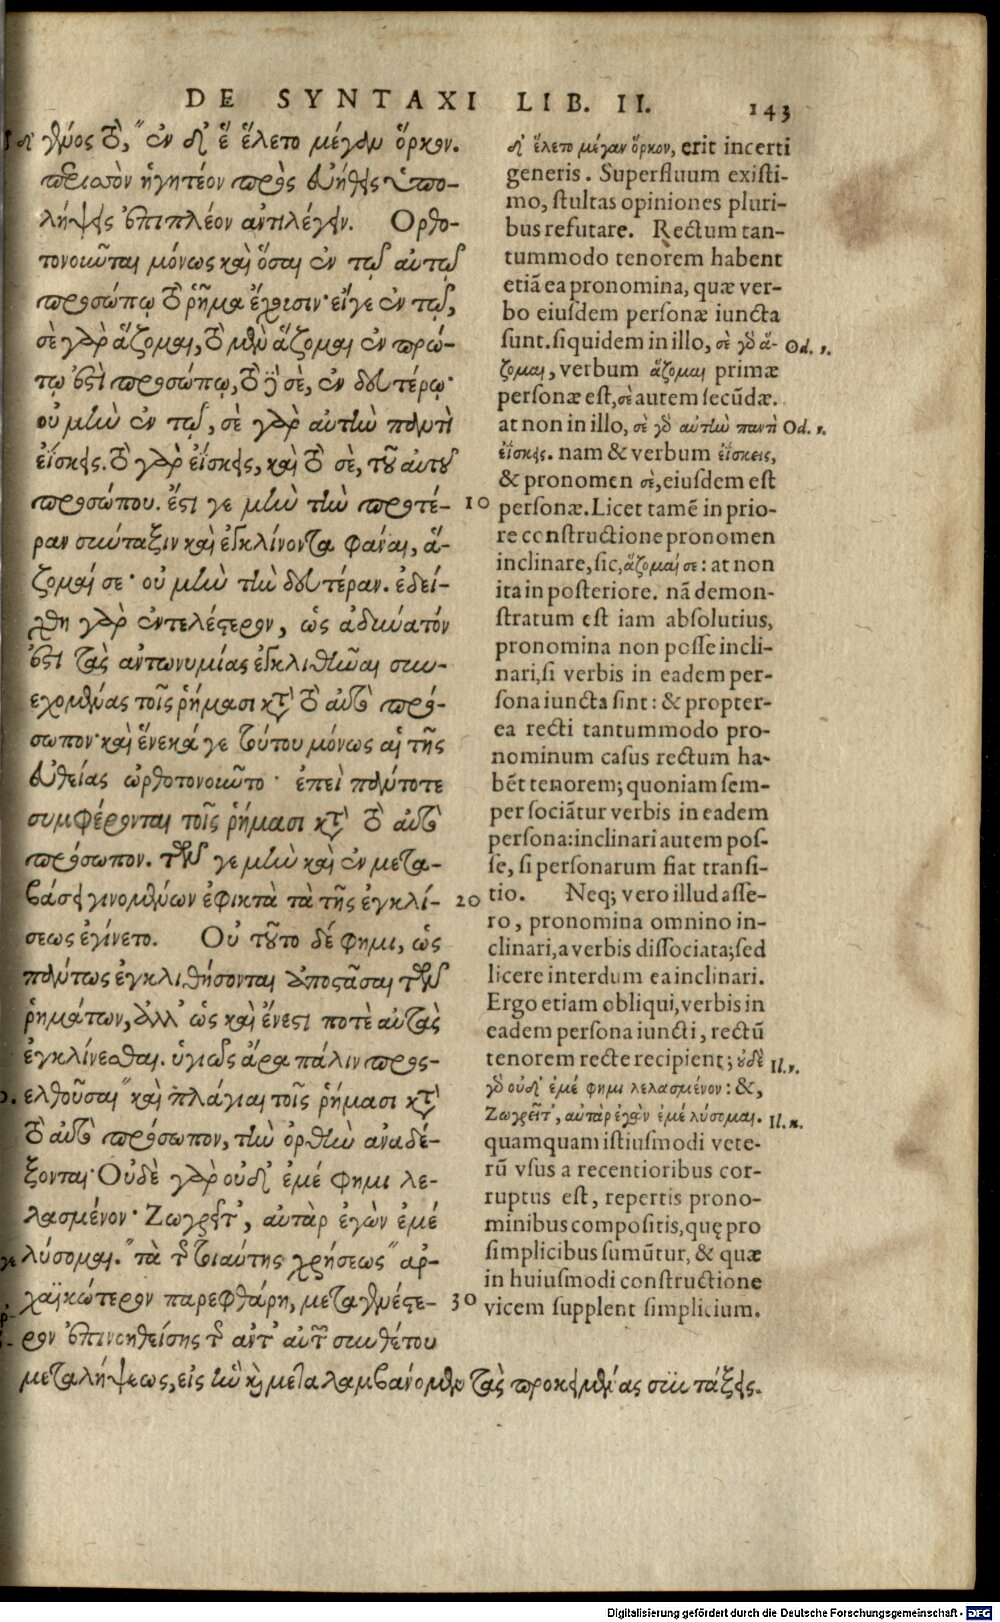 DE SYNTAXI LIB. II. 143
γένος τὸ, ἐν δ' ἓ ἕλετο μέγαν ὅρκον.
περισσὸν ἡγητέον πρὸς εὐήθεις ὑπο-
λήψεις ἐπιπλέον ἀντιλέγειν. Ορθο-
τονοῦνται μόνως καὶ ὅσαι ἐν τῷ αὐτῷ
προσώπῳ τὸ ῥῆμα ἔχουσιν· εἴγε ἐν τῷ,
σὲ γὰρ ἅζομαι, τὸ μὲν ἅζομαι ἐν πρώ-
τῳ ἐστὶ προσώπῳ, τὸ δὲ σὲ, ἐν δευτέρῳ·
οὐ μὴν ἐν τῷ, σὲ γὰρ αὐτὴν παντὶ
ἐΐσκεις. τὸ γὰρ ἐΐσκεις, καὶ τὸ σὲ, τοῦ αὐτοῦ
προσώπου. ἔστι γε μὴν τὴν προτέ-
ραν σύνταξιν καὶ ἐγκλίνοντα φάναι, ἅ-
ζομαί σε· οὐ μὴν τὴν δευτέραν. ἐδεί-
χθη γὰρ ἐντελέστερον, ὡς ἀδύνατόν
ἐστι τὰς ἀντωνυμίας ἐγκλιθῆναι συν-
εχομένας τοῖς ῥήμασι κατὰ τὸ αὐτὸ πρό-
σωπον· καὶ ἕνεκά γε τούτου μόνως αἱ τῆς
εὐθείας ὠρθοτονοῦντο· ἐπεὶ πάντοτε
συμφέρονται τοῖς ῥήμασι κατὰ τὸ αὐτὸ
πρόσωπον. τῶν γε μὴν καὶ ἐν μετα-
βάσει γινομένων ἐφικτὰ τὰ τῆς ἐγκλί-
σεως ἐγίνετο. Οὐ τοῦτο δέ φημι, ὡς
πάντως ἐγκλιθήσονται ἀποστᾶσαι τῶν
ῥημάτων, ἀλλ' ὡς καὶ ἔνεστι ποτὲ αὐτὰς
ἐγκλίνεσθαι. ὑγιῶς ἄρα πάλιν προσ-
ελθοῦσαι καὶ πλάγιαι τοῖς ῥήμασι κατὰ
τὸ αὐτὸ πρόσωπον, τὴν ὀρθὴν ἀναδέ-
ξονται· Οὐδὲ γὰρ οὐδ' ἐμέ φημι λε-
λασμένον· Ζωγρεῖτ', αὐτὰρ ἐγὼν ἐμέ
λύσομαι. τὰ τῆς τοιαύτης χρήσεως ἀρ-
χαϊκώτερον παρεφθάρη, μεταγενέστε-
ρον ἐπινοηθείσης τῆς ἀντ' αὐτῶν συνθέτου
μεταλήψεως, εἰς ἣν καὶ μεταλαμβάνομεν τὰς προκειμένας συντάξεις.
δ' ἕλετο μέγαν ὅρκον, erit incerti
generis. Superfluum existi-
mo, stultas opiniones pluri-
bus refutare. Rectum tan-
tummodo tenorem habent
etiā ea pronomina, quæ ver-
bo eiusdem personæ iuncta
sunt. siquidem in illo, σὲ γὸ ἅ- Od. 1.
ζομαι, verbum ἅζομαι primæ
personæ est, σὲ autem secūdæ.
at non in illo, σὲ γὸ αὐτὴν παντὶ Od. 1.
ἐΐσκεις. nam & verbum ἐΐσκεις,
& pronomen σὲ, eiusdem est
10 personæ. Licet tamē in prio-
re constructione pronomen
inclinare, sic, ἅζομαί σε: at non
ita in posteriore. nā demon-
stratum est iam absolutius,
pronomina non posse incli-
nari, si verbis in eadem per-
sona iuncta sint: & propter-
ea recti tantummodo pro-
nominum casus rectum ha-
bēt tenorem; quoniam sem-
per sociātur verbis in eadem
persona: inclinari autem pos-
se, si personarum fiat transi-
20 tio. Neq; vero illud asse-
ro, pronomina omnino in-
clinari, a verbis dissociata; sed
licere interdum ea inclinari.
Ergo etiam obliqui, verbis in
eadem persona iuncti, rectū
tenorem recte recipient; οὐδὲ Il. ν.
γὸ οὐδ' ἐμέ φημι λελασμένον: &,
Ζωγρεῖτ', αὐτὰρ ἐγὼν ἐμέ λύσομαι. Il. κ.
quamquam istiusmodi vete-
rū vsus a recentioribus cor-
ruptus est, repertis prono-
minibus compositis, quę pro
simplicibus sumūtur, & quæ
in huiusmodi constructione
30 vicem supplent simplicium.
Digitalisierung gefördert durch die Deutsche Forschungsgemeinschaft - DFG